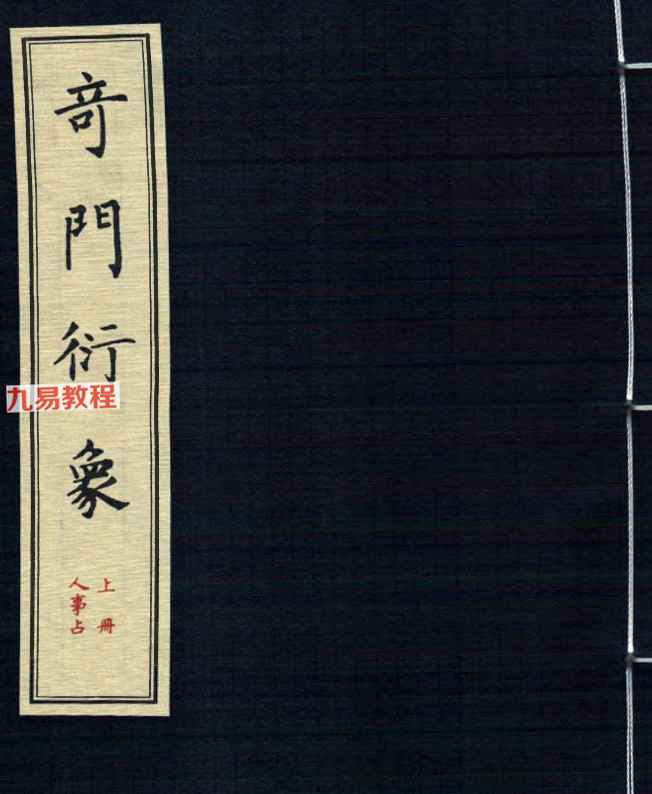 奇門衍象
九易教程
上冊
人事占